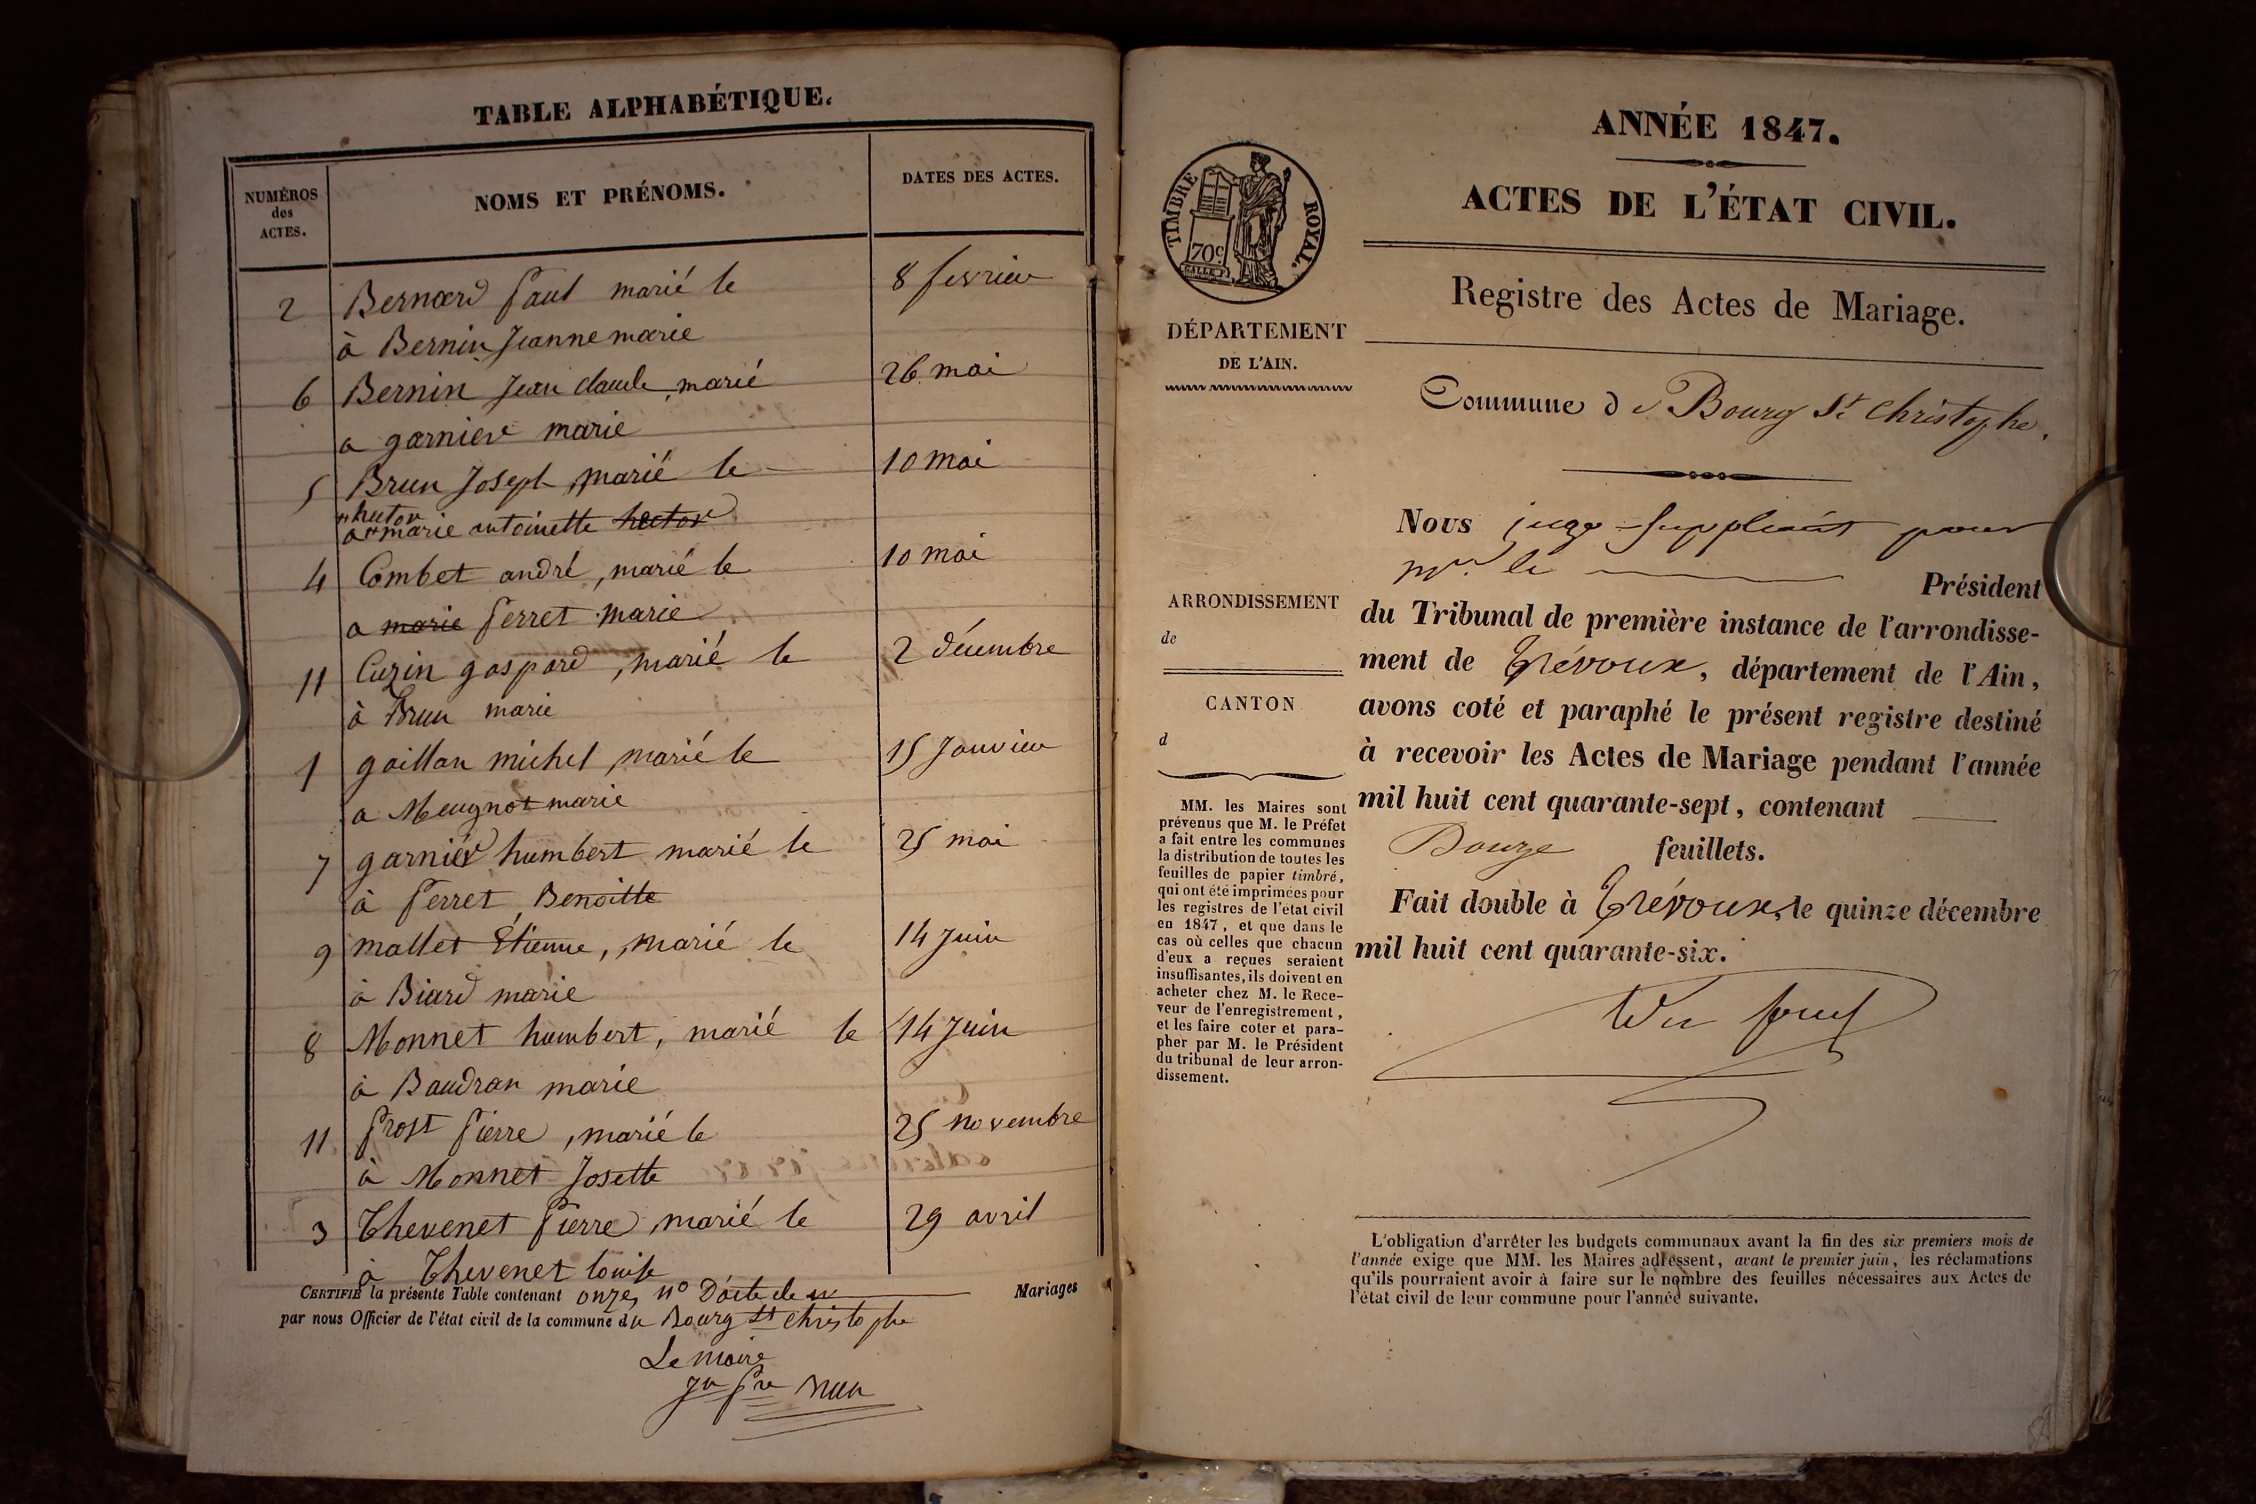 TABLE ALPHABÉTIQUE.
NUMÉROS
des
ACTES.
NOMS ET PRÉNOMS.
DATES DES ACTES.
2 Bernard Paul marié le 8 fevrier
à Bernin Jeanne marie
6 Bernin Jean claude, marié 26 mai
a garnier marie
5 Brun Joseph, marié le 10 mai
hector
a marie antoinette hector
4 Combet andré, marié le 10 mai
a marie Perret marie
11 Cuzin gaspard, marié le 2 décembre
à Brun marie
1 gaillan michel, marié le 15 Janvier
a Meugnot marie
7 garnier humbert marié le 25 mai
à Perret Benoitte
9 mallet Étienne, marié le 14 Juin
à Biard marie
8 Monnet humbert, marié le 14 Juin
à Baudran marie
11 Prost Pierre, marié le 25 novembre
à Monnet Josette
3 Thevenet Pierre, marié le 29 avril
à Thevenet louise
CERTIFIÉ la présente Table contenant onze, n° D'acte de Mariages
par nous Officier de l'état civil de la commune du Bourg St christophe
Le maire
ANNÉE 1847.
ACTES DE L'ÉTAT CIVIL.
TIMBRE ROYAL.
70c
DÉPARTEMENT
DE L'AIN.
Registre des Actes de Mariage.
Commune de Bourg St Christophe.
Nous juge-Suppléant pour
Mr. le Président
du Tribunal de première instance de l'arrondisse-
ment de Trévoux, département de l'Ain,
avons coté et paraphé le présent registre destiné
à recevoir les Actes de Mariage pendant l'année
mil huit cent quarante-sept, contenant
Douze feuillets.
Fait double à Trévoux, le quinze décembre
mil huit cent quarante-six.
ARRONDISSEMENT
de
CANTON
d
MM. les Maires sont
prévenus que M. le Préfet
a fait entre les communes
la distribution de toutes les
feuilles de papier timbré,
qui ont été imprimées pour
les registres de l'état civil
en 1847, et que dans le
cas où celles que chacun
d'eux a reçues seraient
insuffisantes, ils doivent en
acheter chez M. le Rece-
veur de l'enregistrement,
et les faire coter et para-
pher par M. le Président
du tribunal de leur arron-
dissement.
L'obligation d'arrêter les budgets communaux avant la fin des six premiers mois de
l'année exige que MM. les Maires adressent, avant le premier juin, les réclamations
qu'ils pourraient avoir à faire sur le nombre des feuilles nécessaires aux Actes de
l'état civil de leur commune pour l'année suivante.